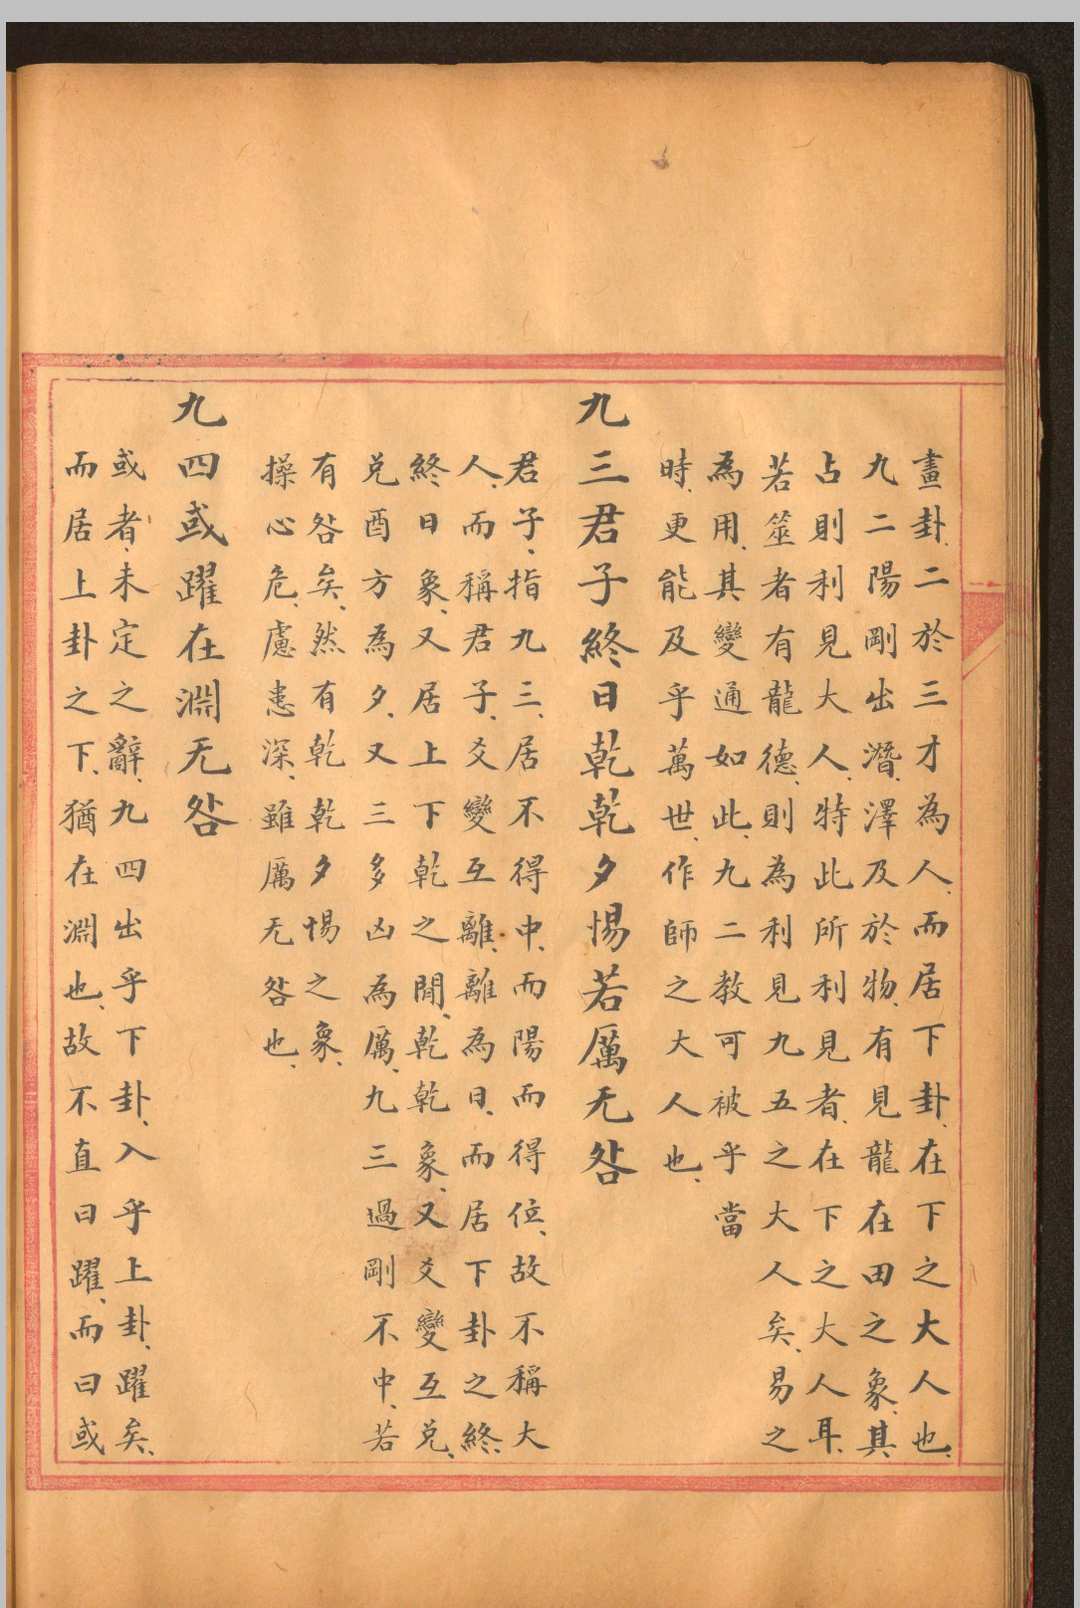 畫卦、二於三才為人、而居下卦、在下之大人也、
九二陽剛出潛、澤及於物、有見龍在田之象、其
占則利見大人、特此所利見者、在下之大人耳、
若筮者有龍德、則為利見九五之大人矣、易之
為用、其變通如此、九二教可被乎當
時、更能及乎萬世、作師之大人也、
九三君子終日乾乾夕惕若厲无咎
君子、指九三、居不得中、而陽而得位、故不稱大
人、而稱君子、爻變互離、離為日、而居下卦之終、
終日象、又居上下乾之閒、乾乾象、又爻變互兌、
兌酉方為夕、又三多凶為厲、九三過剛不中、若
有咎矣、然有乾乾夕惕之象、
操心危、慮患深、雖厲无咎也、
九四或躍在淵无咎
或者、未定之辭、九四出乎下卦、入乎上卦、躍矣、
而居上卦之下、猶在淵也、故不直曰躍、而曰或